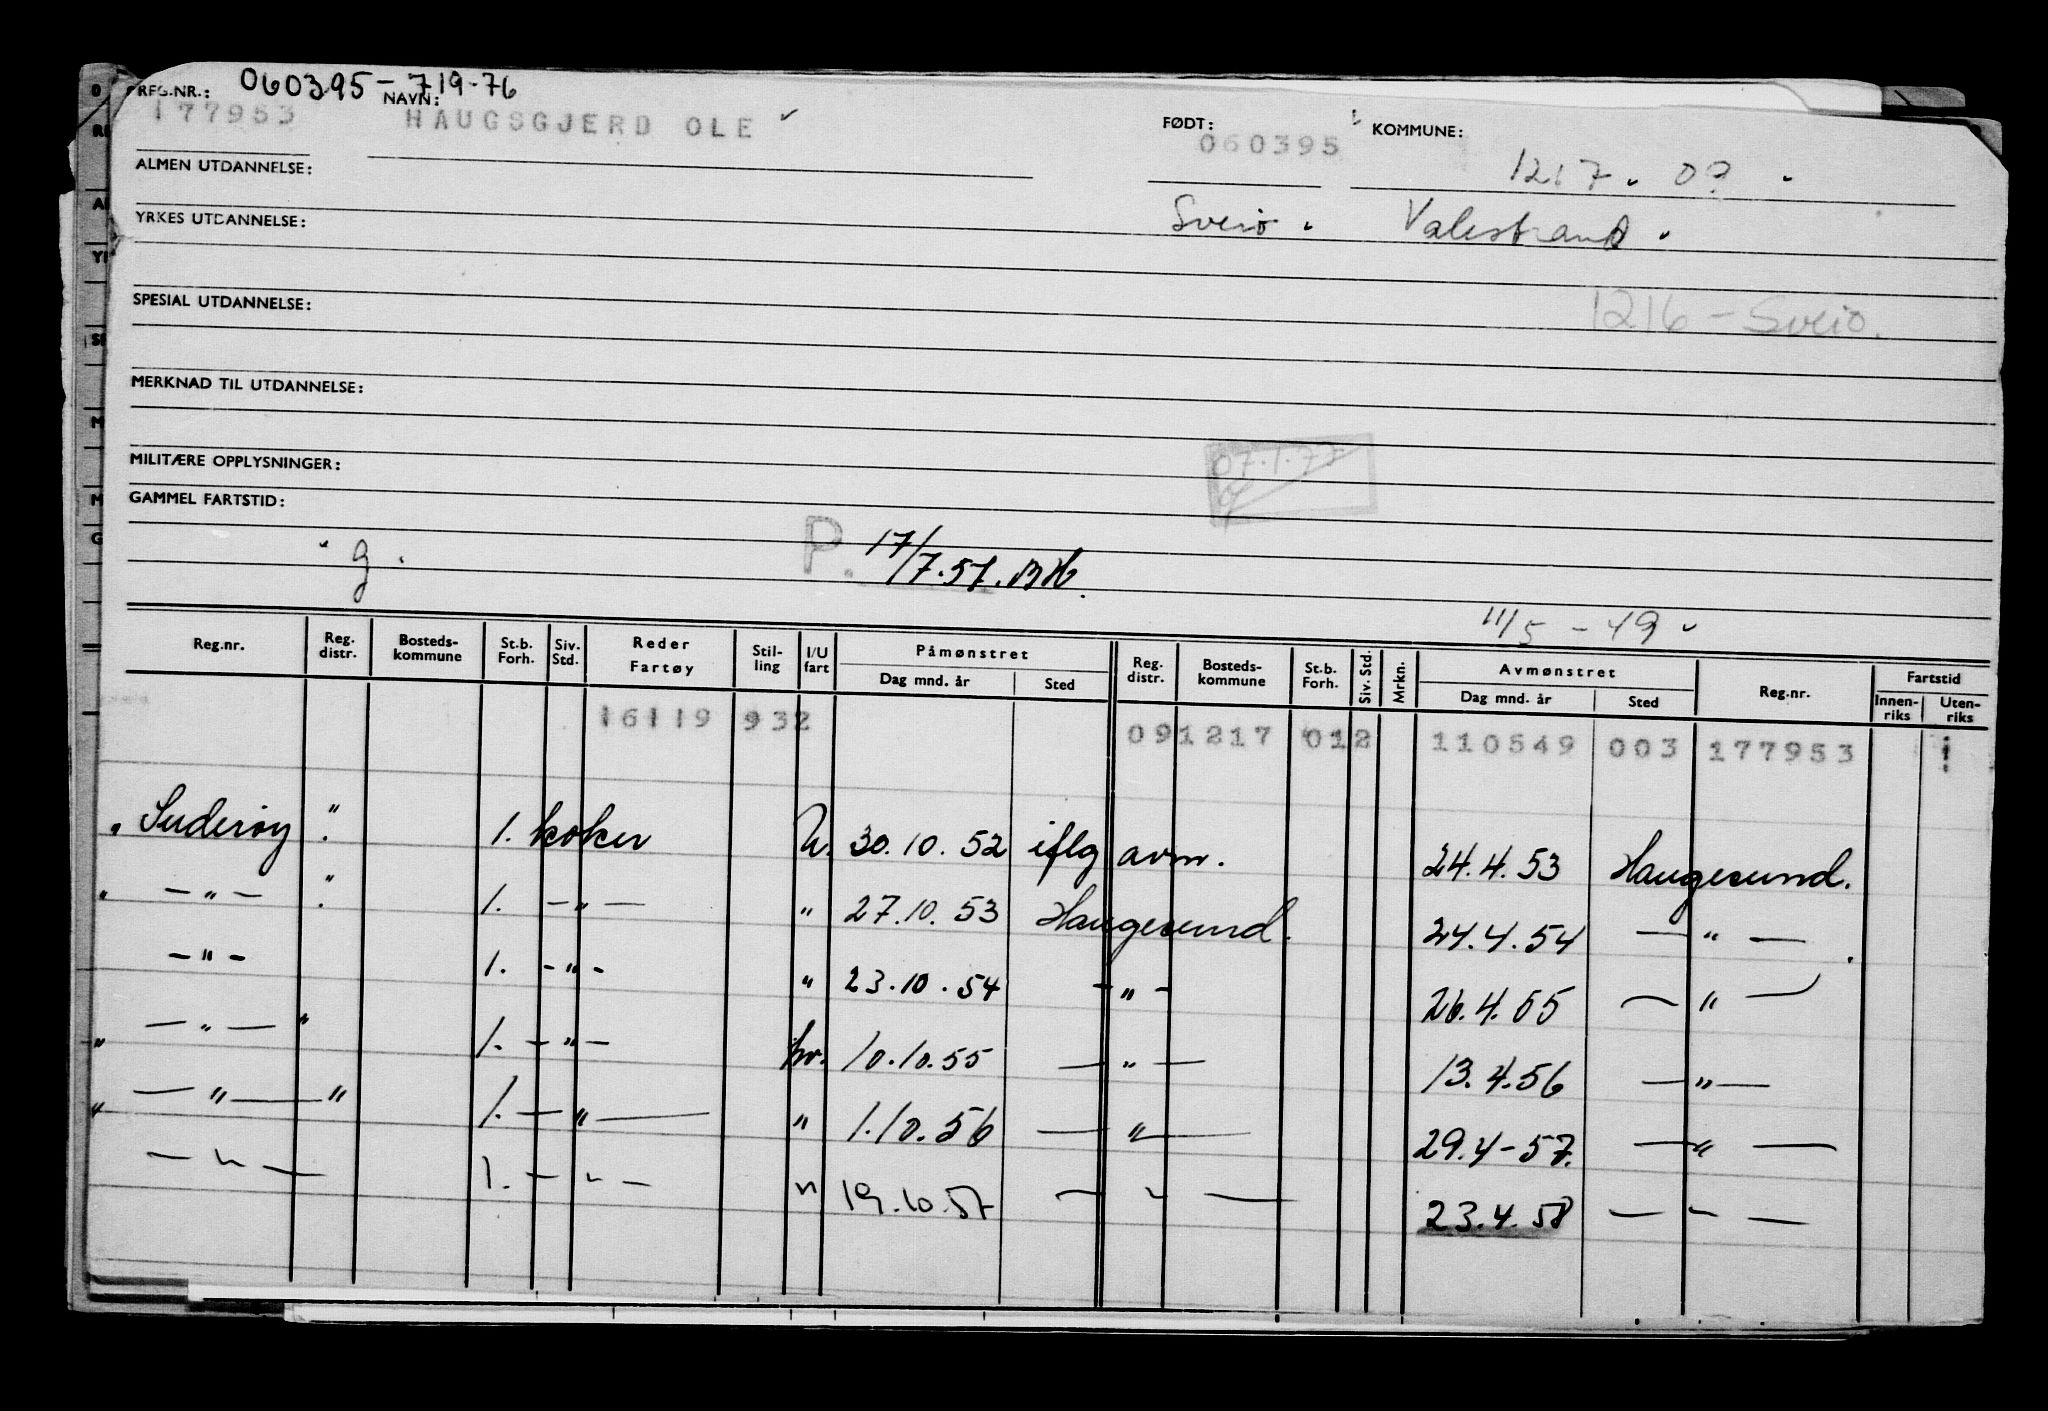 REG.NR.: 060395-719-76
NAVN:
177953 HAUGSGJERD OLE
FØDT: 060395
KOMMUNE: 1217. 0?
ALMEN UTDANNELSE:
Sveio. Valestrand.
YRKES UTDANNELSE:
SPESIAL UTDANNELSE:
1216 - Sveio.
MERKNAD TIL UTDANNELSE:
MILITÆRE OPPLYSNINGER:
07.1.77
GAMMEL FARTSTID:
g. P. 17/7.57.
11/5 - 49
Reg.nr. Reg. distr. Bosteds-kommune St.b. Forh. Siv. Std. Reder Fartøy Stil-ling I/U fart Påmønstret Dag mnd. år Sted Reg. distr. Bosteds-kommune St.b. Forh. Siv. Std. Mrkn. Avmønstret Dag mnd. år Sted Reg.nr. Fartstid Innen-riks Uten-riks
16119 932 091217 012 110549 003 177953
" Suderøy " 1. koker U. 30.10.52 iflg avm. 24.4.53 Haugesund.
" — " — " 1. — " — " 27.10.53 Haugesund. 24.4.54 — " —
— " — 1. — " — " 23.10.54 — " — 26.4.55 — " —
" — " — " 1. — " — hv. 10.10.55 — " — 13.4.56 — " —
" — " — " 1. — " — " 1.10.56 — " — 29.4-57. — " —
— " — 1. — " — " 19.10.57 — " — 23.4.58 — " —